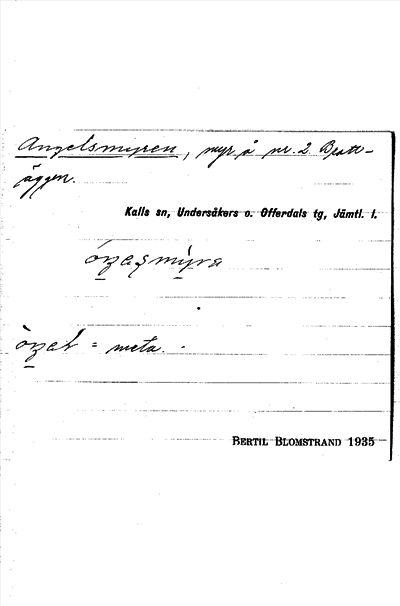 Angelsmyren, myr å nr. 2 Bratt-
äggen.
Kalls sn, Undersåkers o. Offerdals tg, Jämtl. l.
= meta.
BERTIL BLOMSTRAND 1935